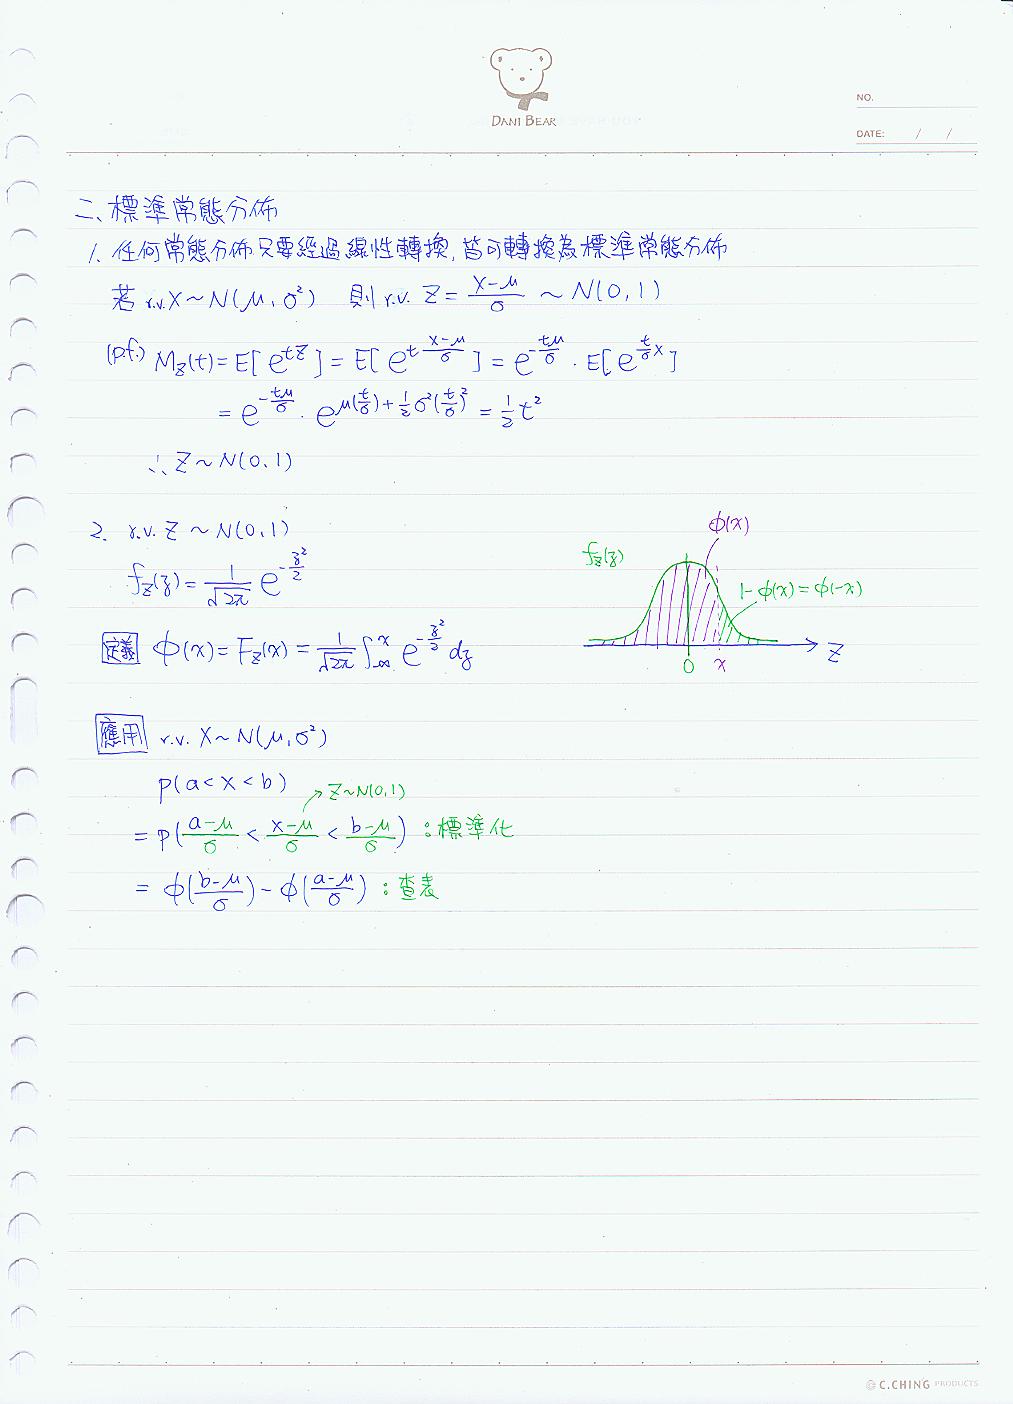 DANI BEAR
NO.
DATE: / /
二、標準常態分佈
1. 任何常態分佈只要經過線性轉換,皆可轉換為標準常態分佈
若 r.v. X~N(μ, σ²) 則 r.v. Z = (X-μ)/σ ~ N(0, 1)
(p.f.) M_Z(t) = E[e^{tZ}] = E[e^{t (X-μ)/σ}] = e^{-tμ/σ} · E[e^{(t/σ)X}]
= e^{-tμ/σ} · e^{μ(t/σ)+½σ²(t/σ)²} = ½t²
∴ Z~N(0, 1)
2. r.v. Z ~ N(0, 1)
f_Z(z) = 1/√2π e^{-z²/2}
定義 ϕ(x) = F_Z(x) = 1/√2π ∫_{-∞}^{x} e^{-z²/2} dz
f_Z(z)
ϕ(x)
1-ϕ(x)=ϕ(-x)
0 x Z
應用 r.v. X~N(μ, σ²)
P(a<X<b)
Z~N(0,1)
= P((a-μ)/σ < (X-μ)/σ < (b-μ)/σ) :標準化
= ϕ((b-μ)/σ) - ϕ((a-μ)/σ) :查表
© C.CHING PRODUCTS